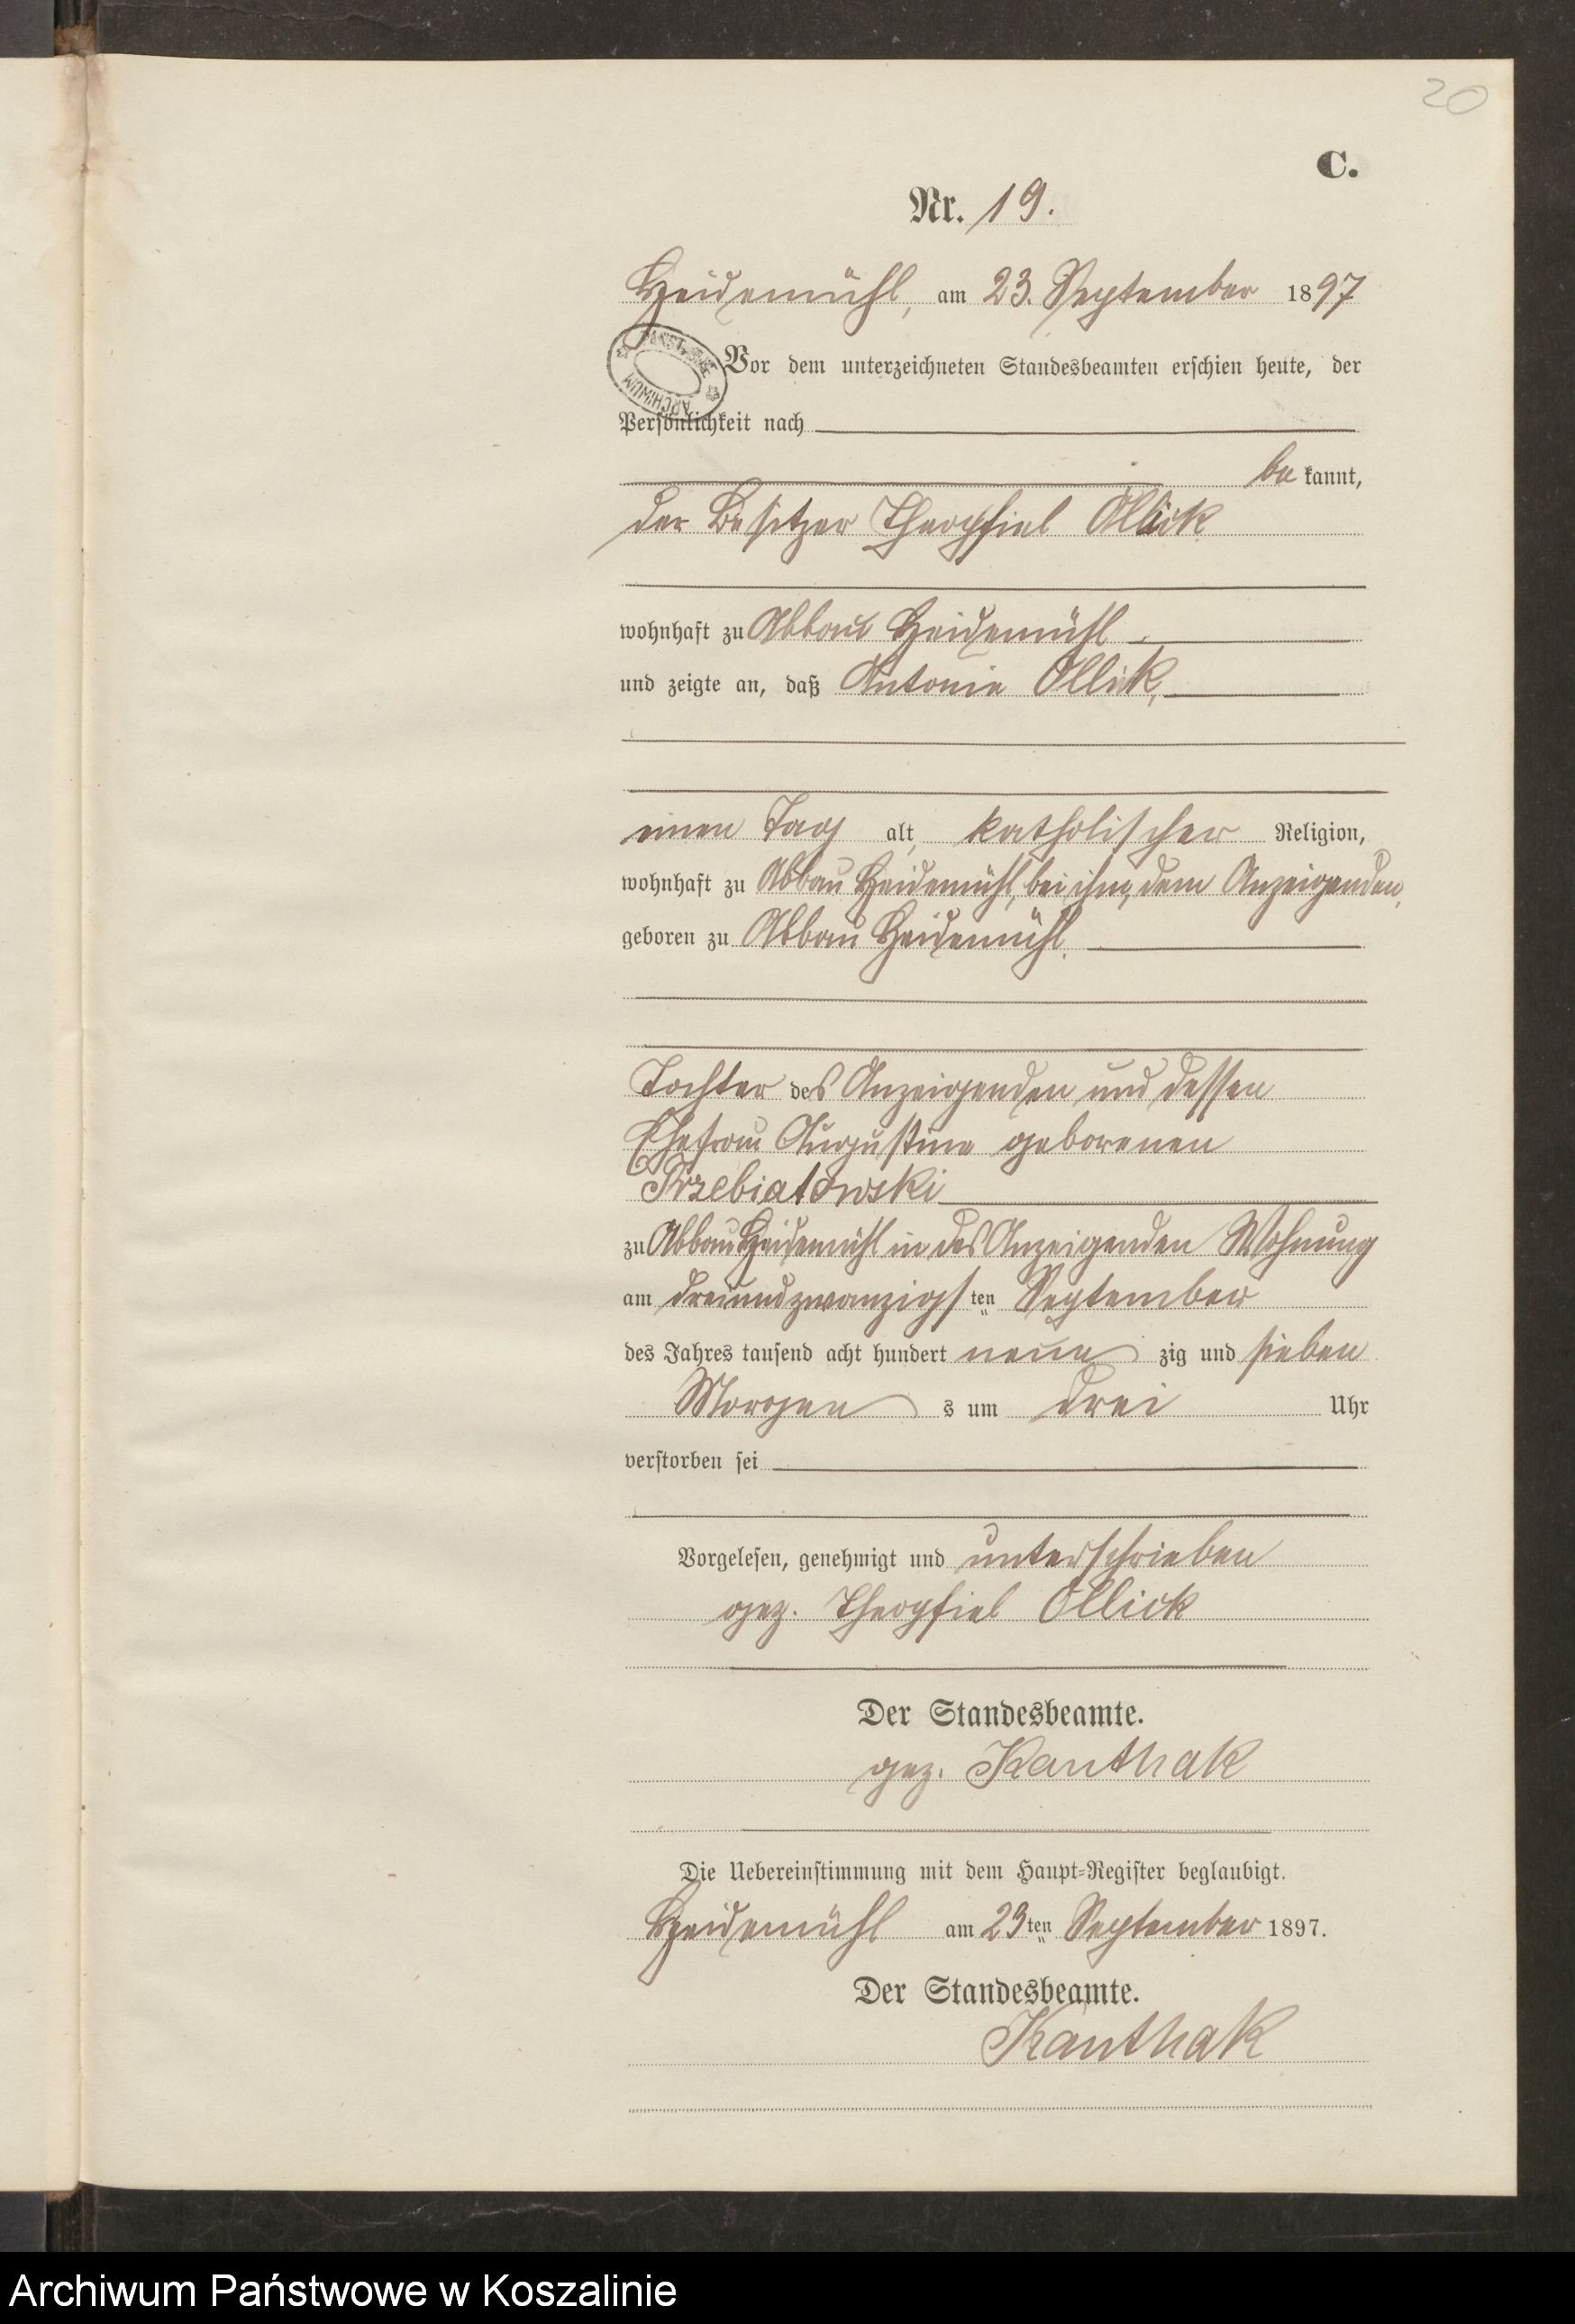 20
C.
Nr. 19.
Heidemühl, am 23. September 1897
Vor dem unterzeichneten Standesbeamten erschien heute, der
Persönlichkeit nach
be kannt,
der Besitzer Theophiel Ollick
wohnhaft zu Abbau Heidemühl
und zeigte an, daß Antonie Ollik,
einen Tag alt, katholischer Religion,
wohnhaft zu Abbau Heidemühl, bei ihm, dem Anzeigenden,
geboren zu Abbau Heidemühl,
Tochter des Anzeigenden und dessen
Ehefrau Augustine geborenen
Przebiatowski
zu Abbau Heidemühl in des Anzeigenden Wohnung
am dreiundzwanzigsten September
des Jahres tausend acht hundert neun zig und sieben
Morgen s um drei Uhr
verstorben sei
Vorgelesen, genehmigt und unterschrieben
gez. Theophiel Ollick
Der Standesbeamte.
gez. Kanthak
Die Uebereinstimmung mit dem Haupt-Register beglaubigt.
Heidemühl am 23ten September 1897.
Der Standesbeamte.
Kanthak
Archiwum Państwowe w Koszalinie